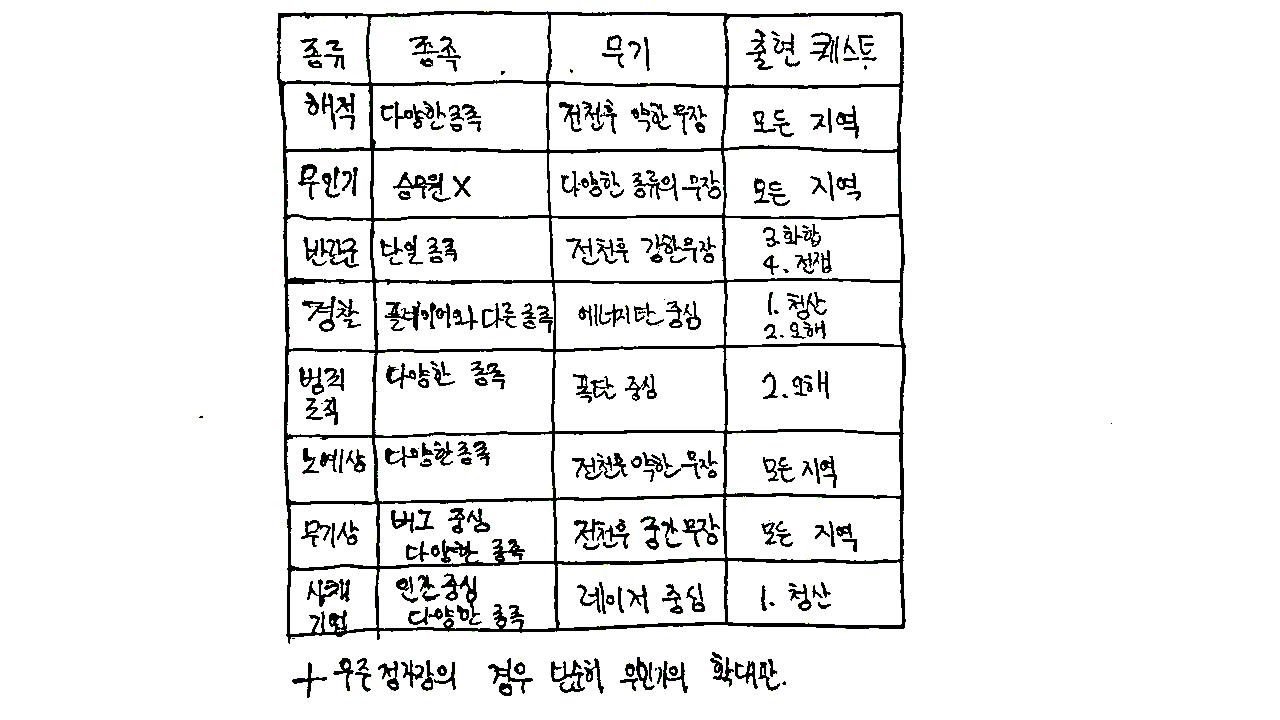 종류 종족 무기 출현 퀘스트
해적 다양한 종족 전천후 약한 무장 모든 지역
무인기 승무원 X 다양한 종류의 무장 모든 지역
반란군 단일 종족 전천후 강한무장 3. 화합
4. 전쟁
경찰 플레이어와 다른 종족 에너지탄 중심 1. 청산
2. 오해
범죄 다양한 종족 폭탄 중심 2. 오해
조직
노예상 다양한종족 전천후 약한 무장 모든 지역
무기상 버그 중심 전천후 중간 무장 모든 지역
다양한 종족
사채 인간 중심 레이저 중심 1. 청산
기업 다양한 종족
+ 우주 정거장의 경우 단순히 무인기의 확대판.